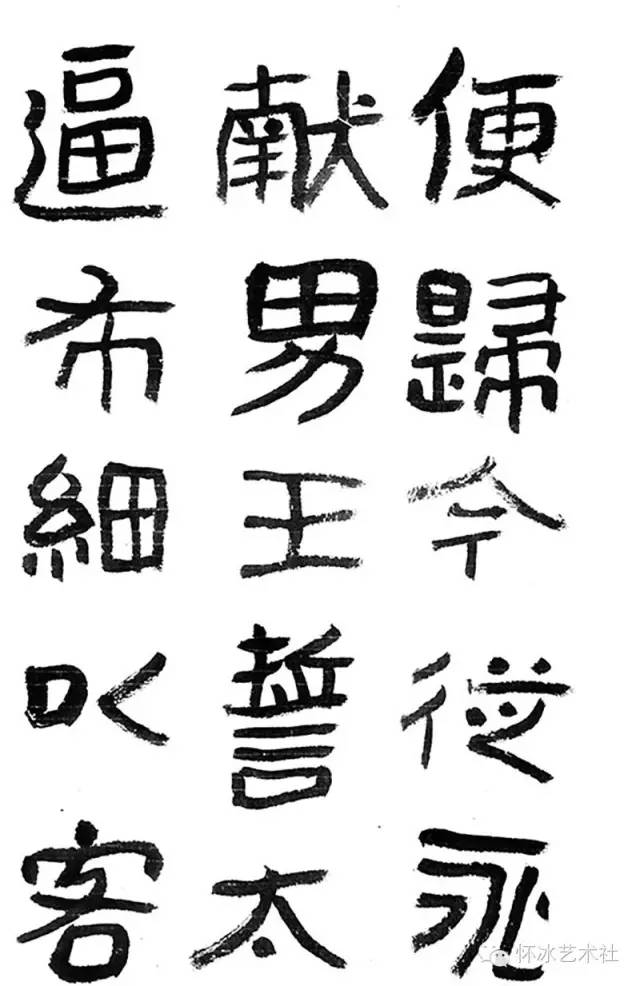 便歸今從永
献男王誓太
逼布細以客
怀冰艺术社